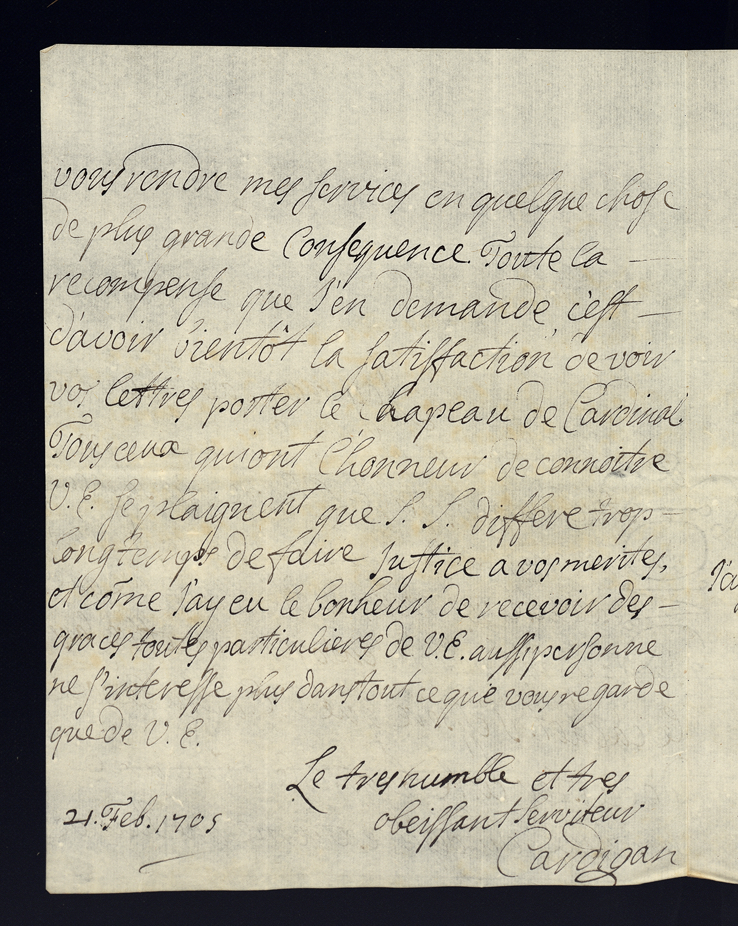 vous rendre mes services en quelque chose
de plus grande Consequence. Toute la
recompense que J'en demande, c'est
d'avoir bientôt la satisfaction de voir
vos lettres porter le chapeau de Cardinal.
Tous ceux qui ont l'honneur de connoitre
V. E. se plaignent que S. S. differe trop
longtemps de faire Justice a vos merites,
et côme J'ay eu le bonheur de recevoir des
graces toutes particulieres de V. E. aussi personne
ne s'interesse plus dans tout ce que vous regarde
que de V. E.
Le tres humble et tres
obeissant Serviteur
Cardigan
21. Feb. 1705